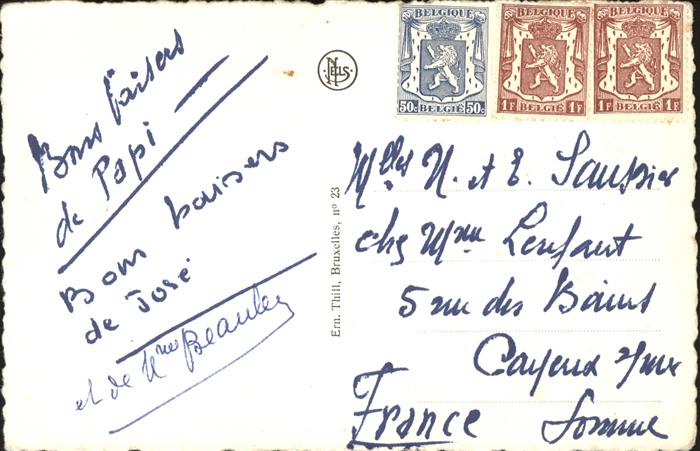 Bons baisers
de Papi
Bons baisers
de José
et de Mme
NELS
Ern. Thill, Bruxelles, nº 23
BELGIQUE
50c BELGIË 50c
BELGIQUE
1F BELGIË 1F
BELGIQUE
1F BELGIË 1F
Mlles N. et E.
chez Mme Lenfant
5 rue des Bains
Cayeux s/mer
France Somme